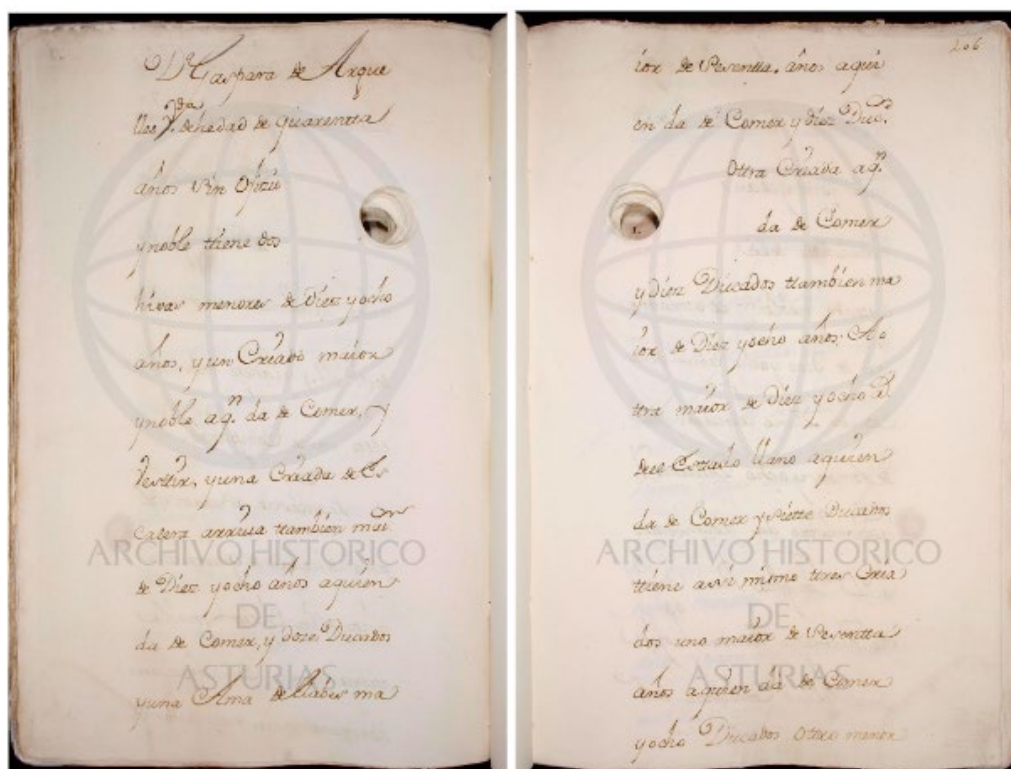 Dª Gaspara de Argue
lles Vda. dehedad de quarentta
años sin Ofizio
y noble ttiene dos
hixas menores de Diez y ocho
años, y un Criado maior
y noble aqn. da de Comer, y
Vesttir, y una Criada de Es
calera arriva ttambien maior
de Diez y ocho años aquien
da de Comer, y doze Ducados
y una Ama de llabes ma
206
ior de Sesentta años aqui
en da de Comer y diez Ducs.
Ottra Criada aqn.
da de Comer
y diez Ducados ttambien ma
ior de Diez y ocho años, Ao
ttra maior de diez y ocho as.
del Esttado llano aquien
da de Comer y siette Ducados
ttiene assi mismo ttres Cria
dos uno maior de Sesentta
años aquien da de Comer
y ocho Ducados Ottro menor
ARCHIVO HISTORICO
DE
ASTURIAS
ARCHIVO HISTORICO
DE
ASTURIAS